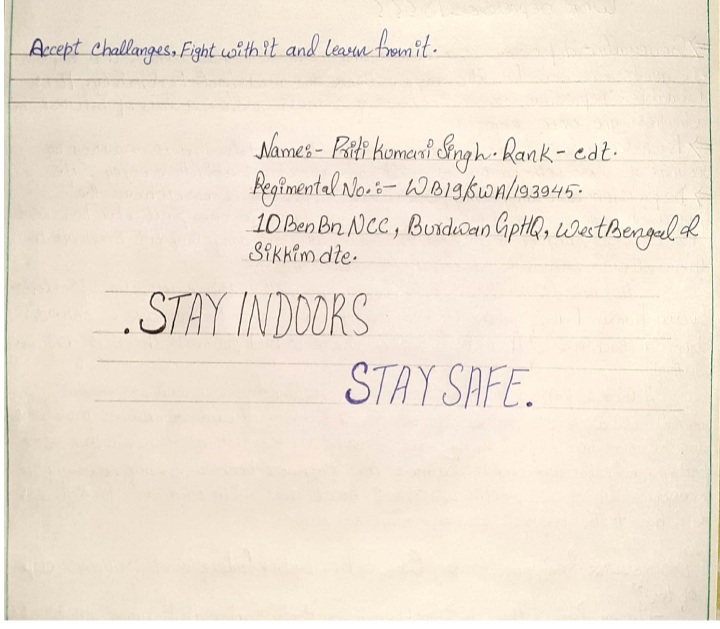 Accept challanges, Fight with it and learn from it.
Name:- Priti Kumari Singh. Rank - cdt.
Regimental No.:- WB19/SWA/193945.
10 Ben Bn NCC, Burdwan GpHQ, West Bengal &
Sikkim dte.
. STAY INDOORS
STAY SAFE.